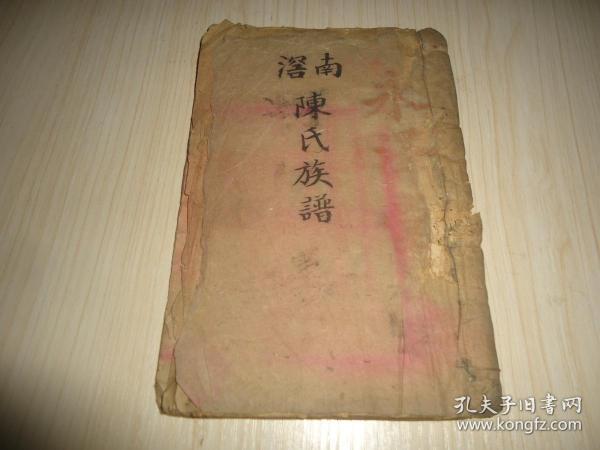 南滘
陳氏族譜
孔夫子旧书网
www.kongfz.com